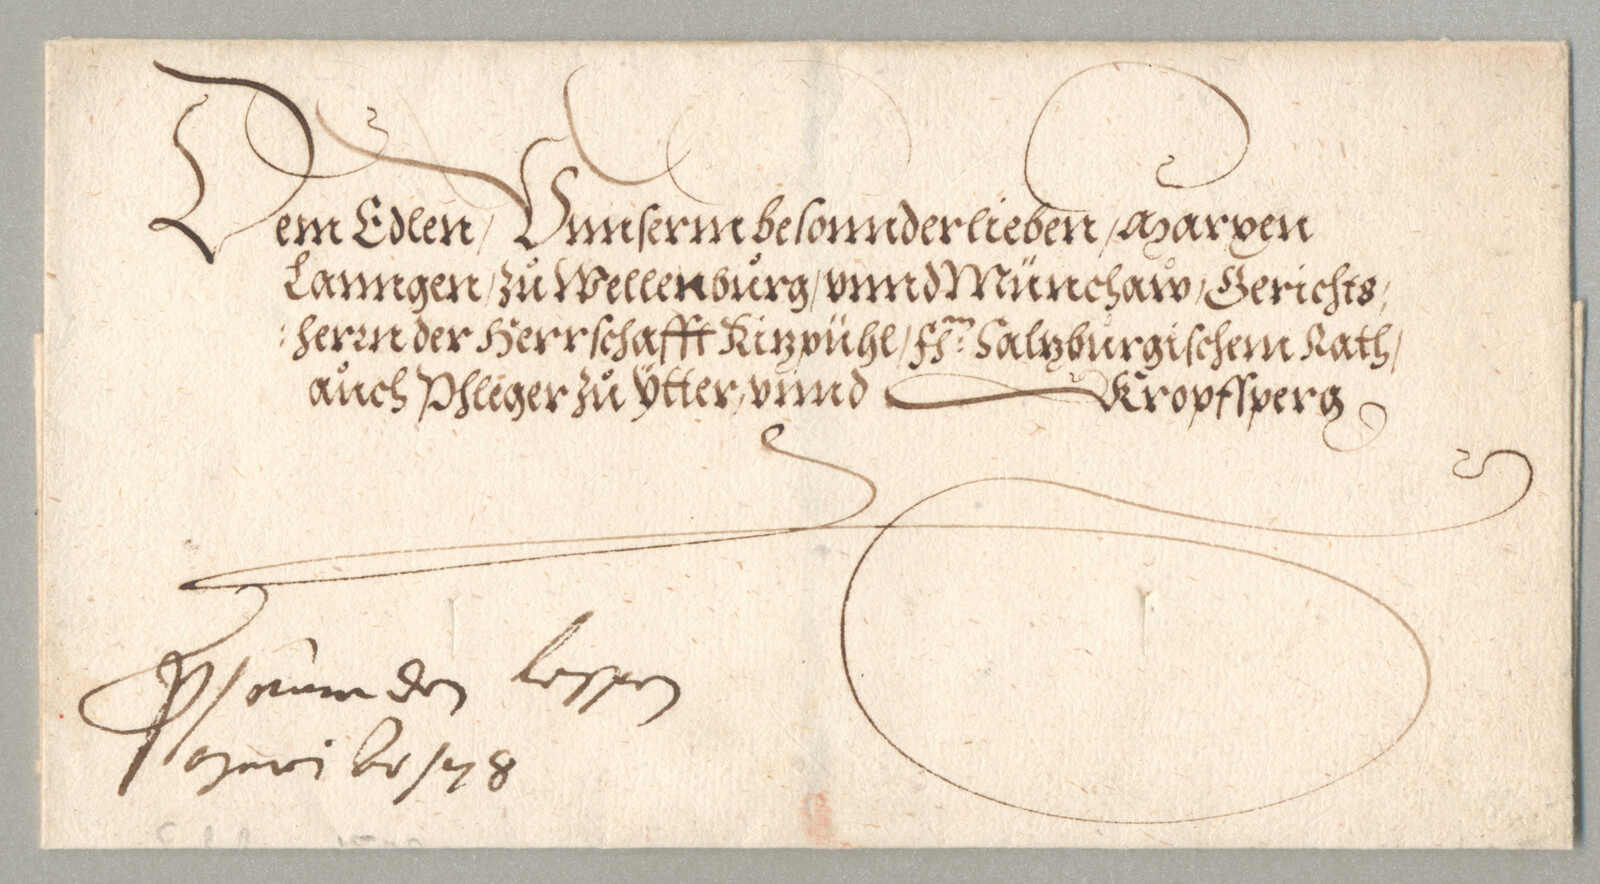 Dem Edlen / Vnnserm besonnder lieben / Marxen
Lanngen / zů Wellenbůrg / vnnd Münchaw / Gerichts /
herrn der Herrschafft Kizpühl / fh: Salzbůrgischem Rath /
aůch Phleger zů Ytter, vnnd Kropfsperg
den
78